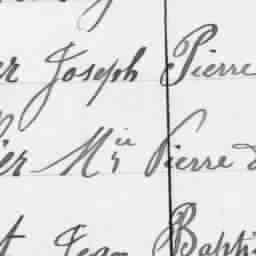 er Joseph Pierre
ier Mie Pierre d
t Jean Bapti